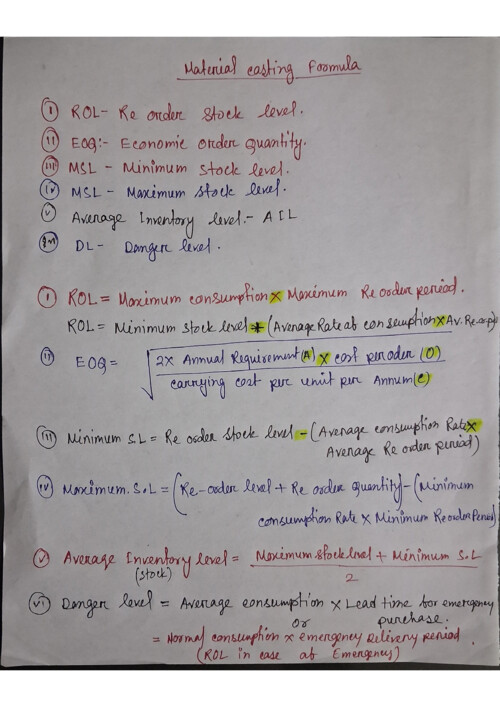 Material costing Formula
(i) ROL - Re order stock level.
(ii) EOQ:- Economic order quantity.
(iii) MSL - Minimum stock level.
(iv) MSL - Maximum stock level.
(v) Average Inventory level.- AIL
(vi) DL - Danger level.
(i) ROL = Maximum consumption × Maximum Re order period.
ROL = Minimum stock level + (Average Rate of consumption × Av. Re-
(ii) EOQ = √ 2× Annual Requirement (A) × cost per oder (O)
carrying cost per unit per Annum (C)
(iii) Minimum S.L = Re order stock level - (Average consumption Rate ×
Average Re order period)
(iv) Maximum S.L = (Re-order level + Re order quantity) - (Minimum
consumption Rate × Minimum Reorder Period)
(v) Average Inventory level = Maximum stock level + Minimum S.L
(stock)
2
(vi) Danger level = Average consumption × Lead time for emergency
or purchase.
= Normal consumption × emergency Delivery period
(ROL in case of Emergency)